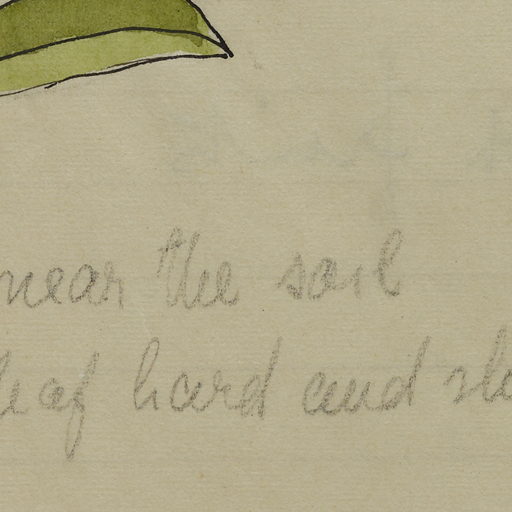 near the soil
leaf hard and